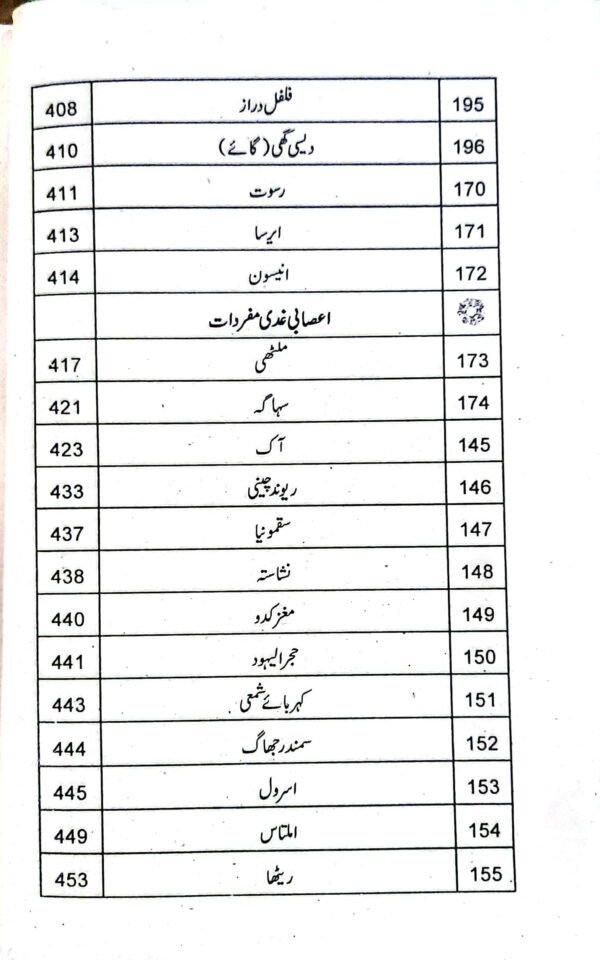 195 فلفل دراز 408
196 دیسی گھی (گائے) 410
170 رسوت 411
171 ایرسا 413
172 انیسون 414
اعصابی غدی مفردات
173 ملٹھی 417
174 سہاگہ 421
145 آک 423
146 ریوند چینی 433
147 سقمونیا 437
148 نشاستہ 438
149 مغز کدو 440
150 حجر الیہود 441
151 کہربائے شمعی 443
152 سمندر جھاگ 444
153 اسرول 445
154 املتاس 449
155 ریٹھا 453